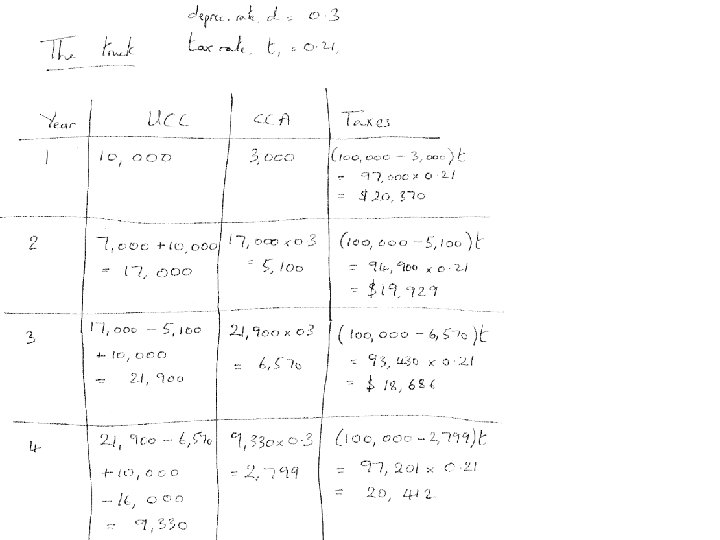 deprec. rate d = 0.3
The truck
tax rate. t, = 0.21,
Year UCC CCA Taxes
1 10,000 3,000 (100,000 - 3,000)t
= 97,000 x 0.21
= $20,370
2 7,000 + 10,000 17,000 x 0.3 (100,000 - 5,100)t
= 17,000 = 5,100 = 94,900 x 0.21
= $19,929
3 17,000 - 5,100 21,900 x 0.3 (100,000 - 6,570)t
+ 10,000 = 6,570 = 93,430 x 0.21
= 21,900 = $18,686
4 21,900 - 6,570 9,330 x 0.3 (100,000 - 2,799)t
+10,000 = 2,799 = 97,201 x 0.21
-16,000 = 20,412
= 9,330